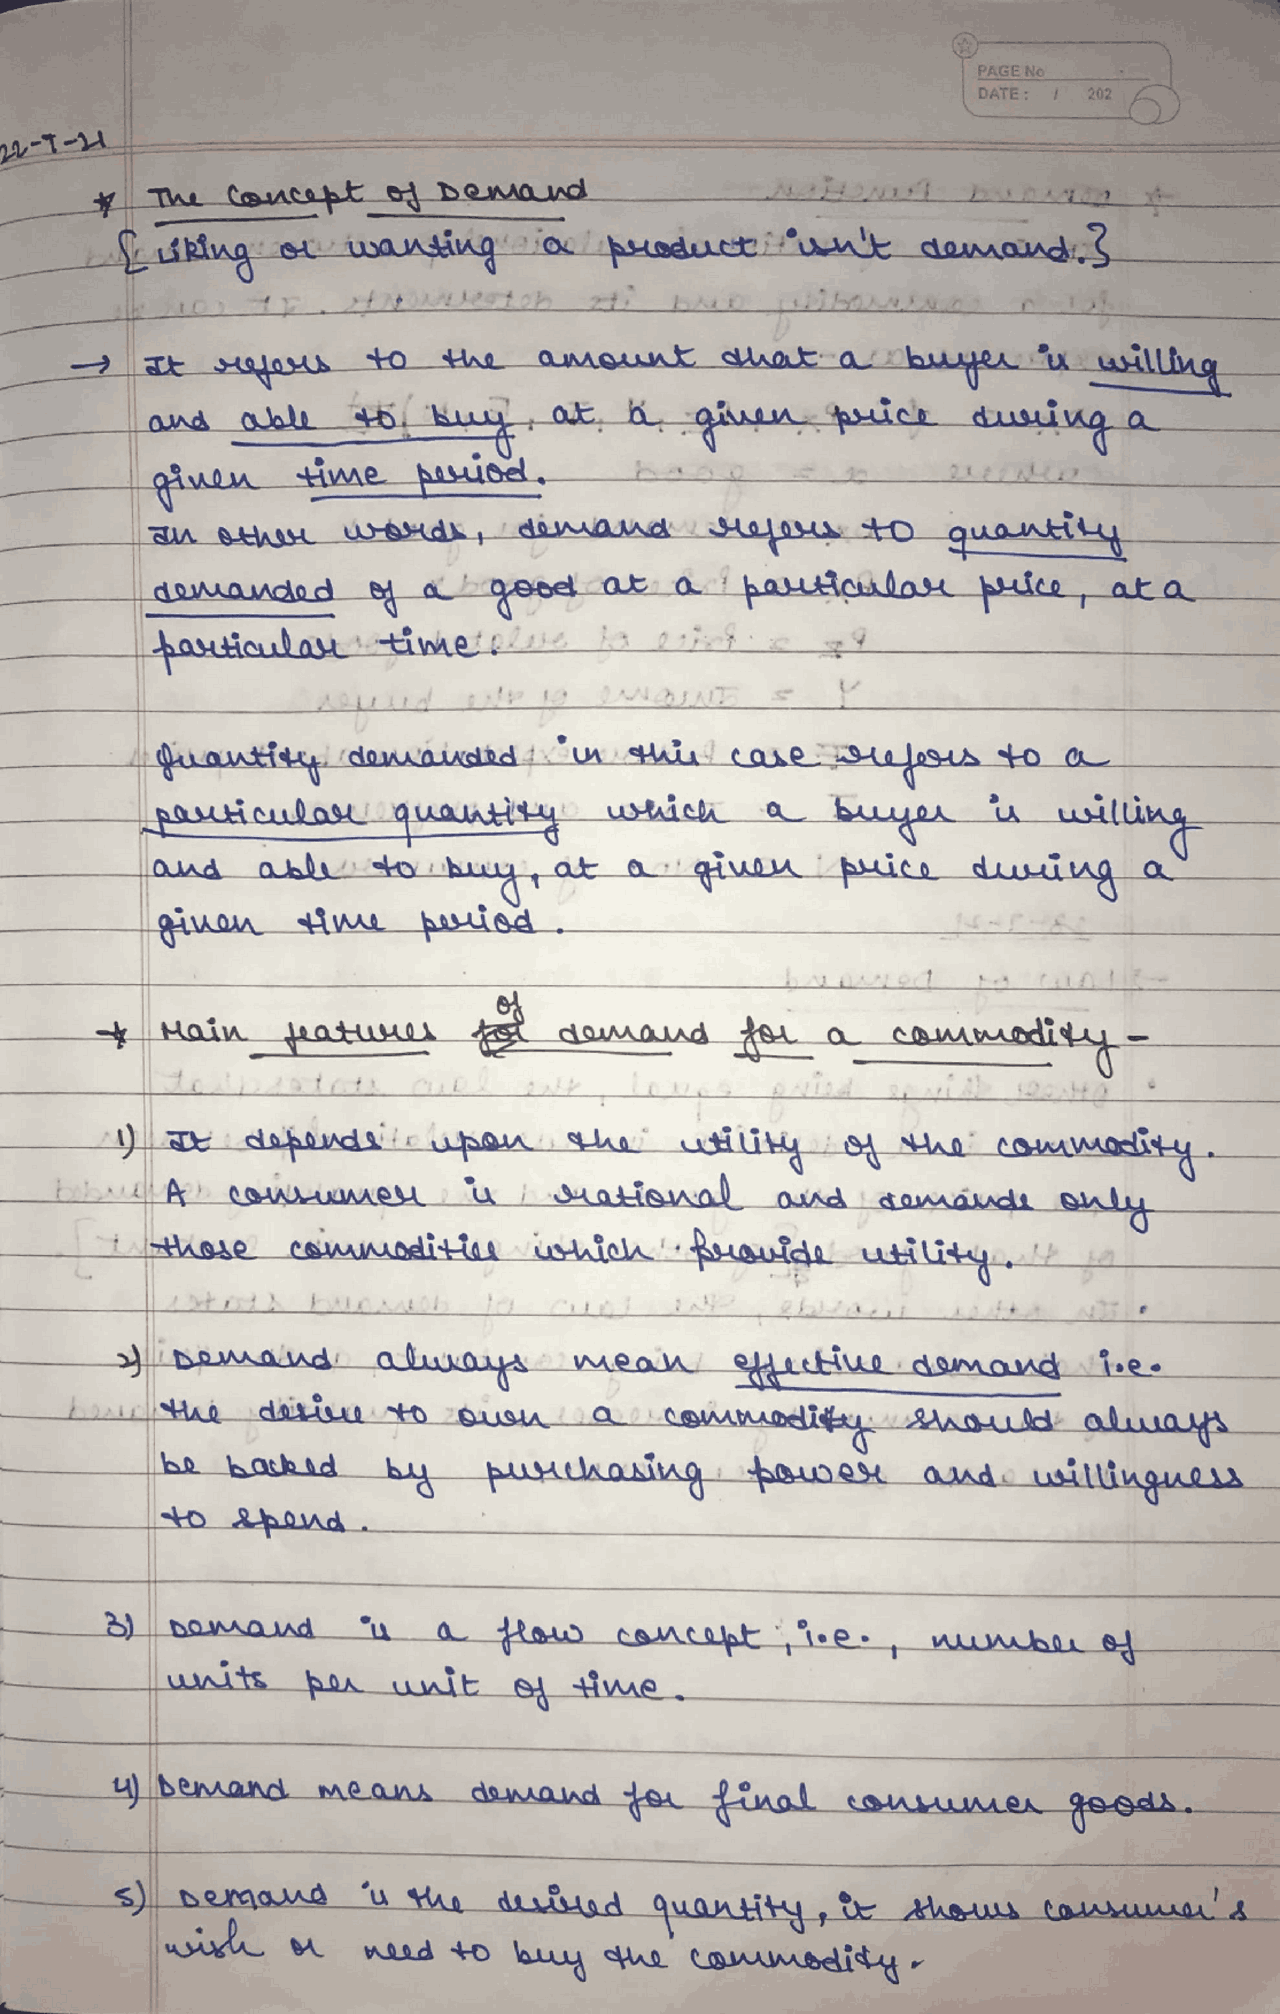 PAGE No
DATE: / 202
22-7-21
* The Concept of Demand
{Liking or wanting a product isn't demand.}
→ It refers to the amount that a buyer is willing
and able to buy, at a given price during a
given time period.
In other words, demand refers to quantity
demanded of a good at a particular price, at a
particular time.
Quantity demanded in this case refers to a
particular quantity which a buyer is willing
and able to buy, at a given price during a
given time period.
* Main features of demand for a commodity -
1) It depends upon the utility of the commodity.
A consumer is rational and demands only
those commodities which provide utility.
2) Demand always mean effective demand i.e.
the desire to own a commodity should always
be backed by purchasing power and willingness
to spend.
3) Demand is a flow concept, i.e., number of
units per unit of time.
4) Demand means demand for final consumer goods.
5) Demand is the desired quantity, it shows consumer's
wish or need to buy the commodity.